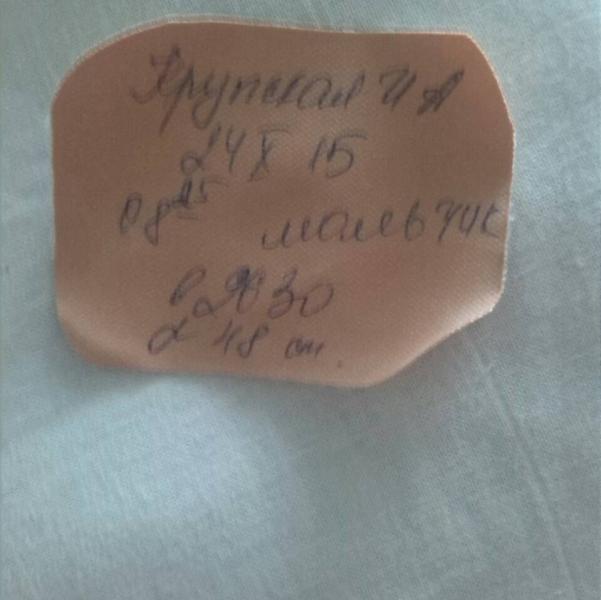 Крупская И А
24 X 15
в 8 25 мальчик
в 2830
д 48 см.